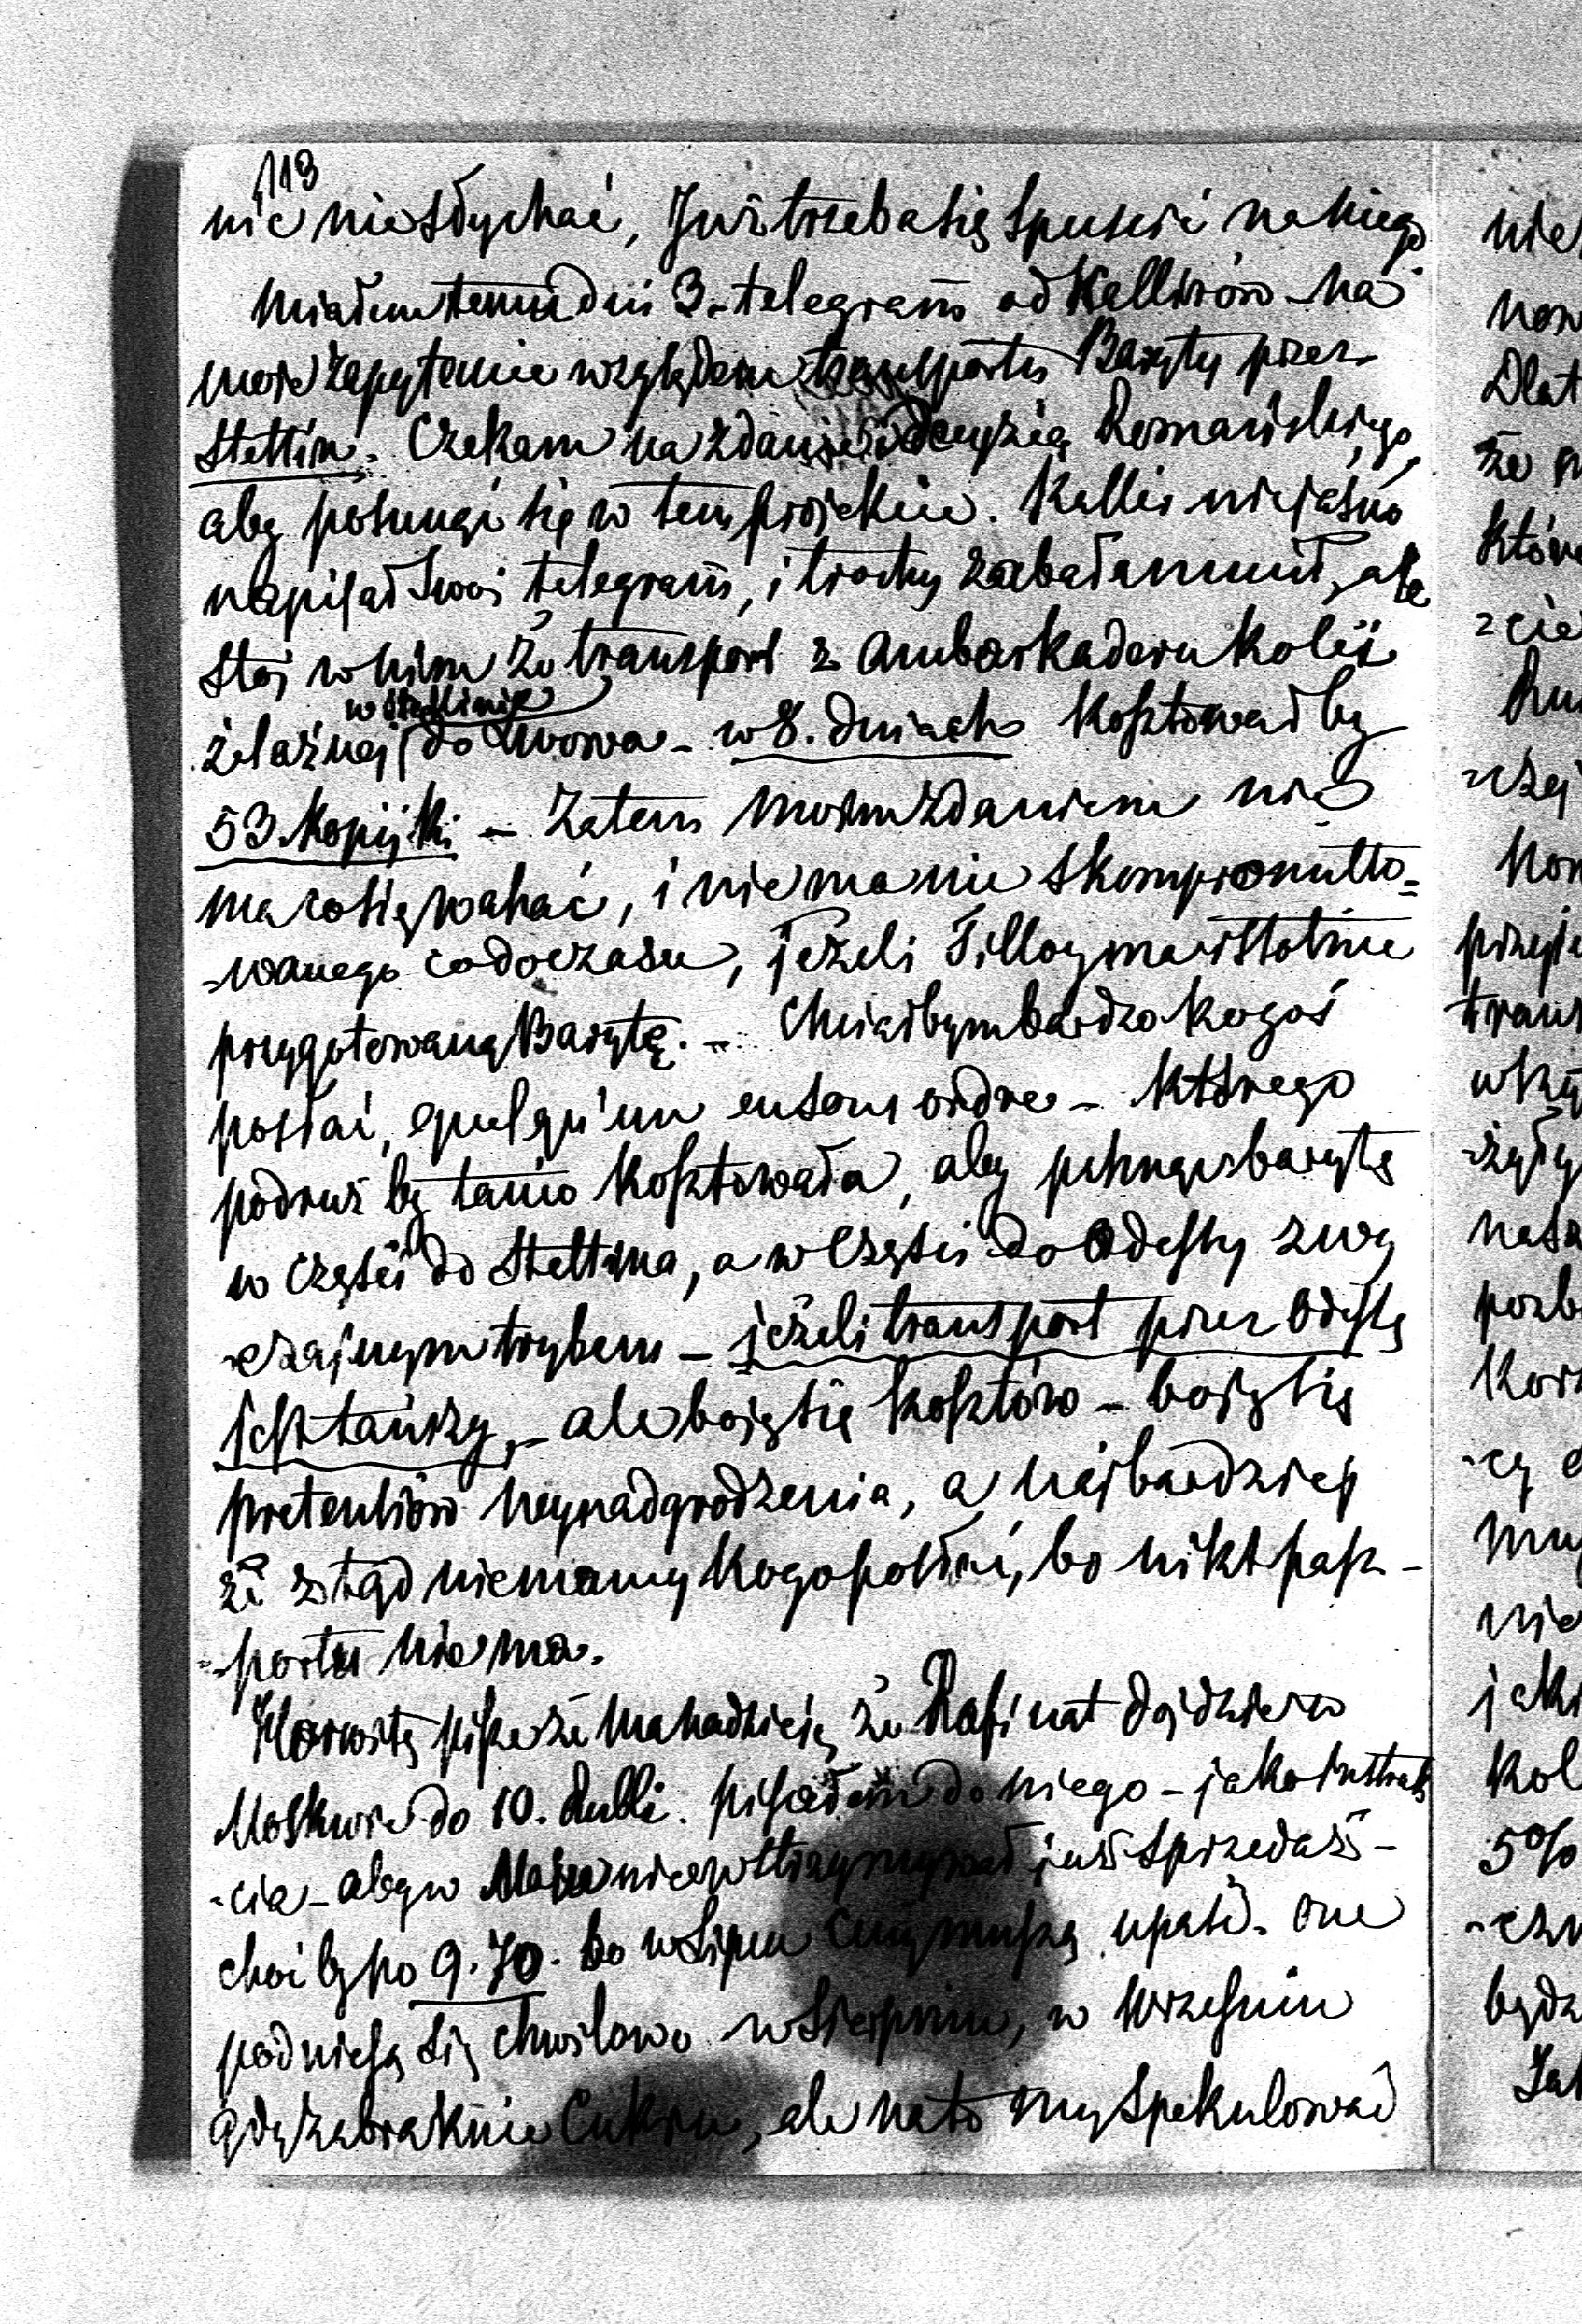 113
nic nie słychać, Już trzeba się spuścić na niego
Miałem temu dni 3. telegram od Kellerów na
moje zapytanie względem transportu Baryty przez
Stettin. Czekam na zdanie i decyzią Romańskiego,
aby posunąć się w tem projekcie. Keller niejasno
napisał swój telegram, i trochę zabałamucił, ale
stoi w nim że transport z Ambarkaderu kolei
w Stettinie
żelaznej do Lwowa - w 8. dniach kosztował by
53 Kopijki - Zatem moim zdaniem nie
ma co się wahać, i nie ma nic skompromitto=
-wanego co do czasu, jeżeli Tilloy ma istotnie
przygotowaną Barytę. - Chciałbym bardzo kogoś
posłać, quelqu'un en sous ordre - którego
podróż by tanio kosztowała, aby pchnąć barytę
w części do Stettina, a w części do Odessy zwy
-czajnym trybem - jeżeli transport przez Odessę
jest tańszy, - ale boję się kosztów - boję się
pretensiów wynadgrodzenia, a najbardziej
że z tąd niemamy kogo posłać, bo nikt pasz-
-portu nie ma.
Horwitz pisze że ma nadzieję że Rafinat dojdzie w
Moskwie do 10. Rubli. pisałem do niego - jako
-cia - aby w nie wstrzymywał już sprzedaż -
choć by po 9.70. bo w Lipcu ceny muszą upaść. One
podniosą się chwilowo w Sierpniu, w Wrześniu
gdy zabraknie Cukru, ale na to my spekulować